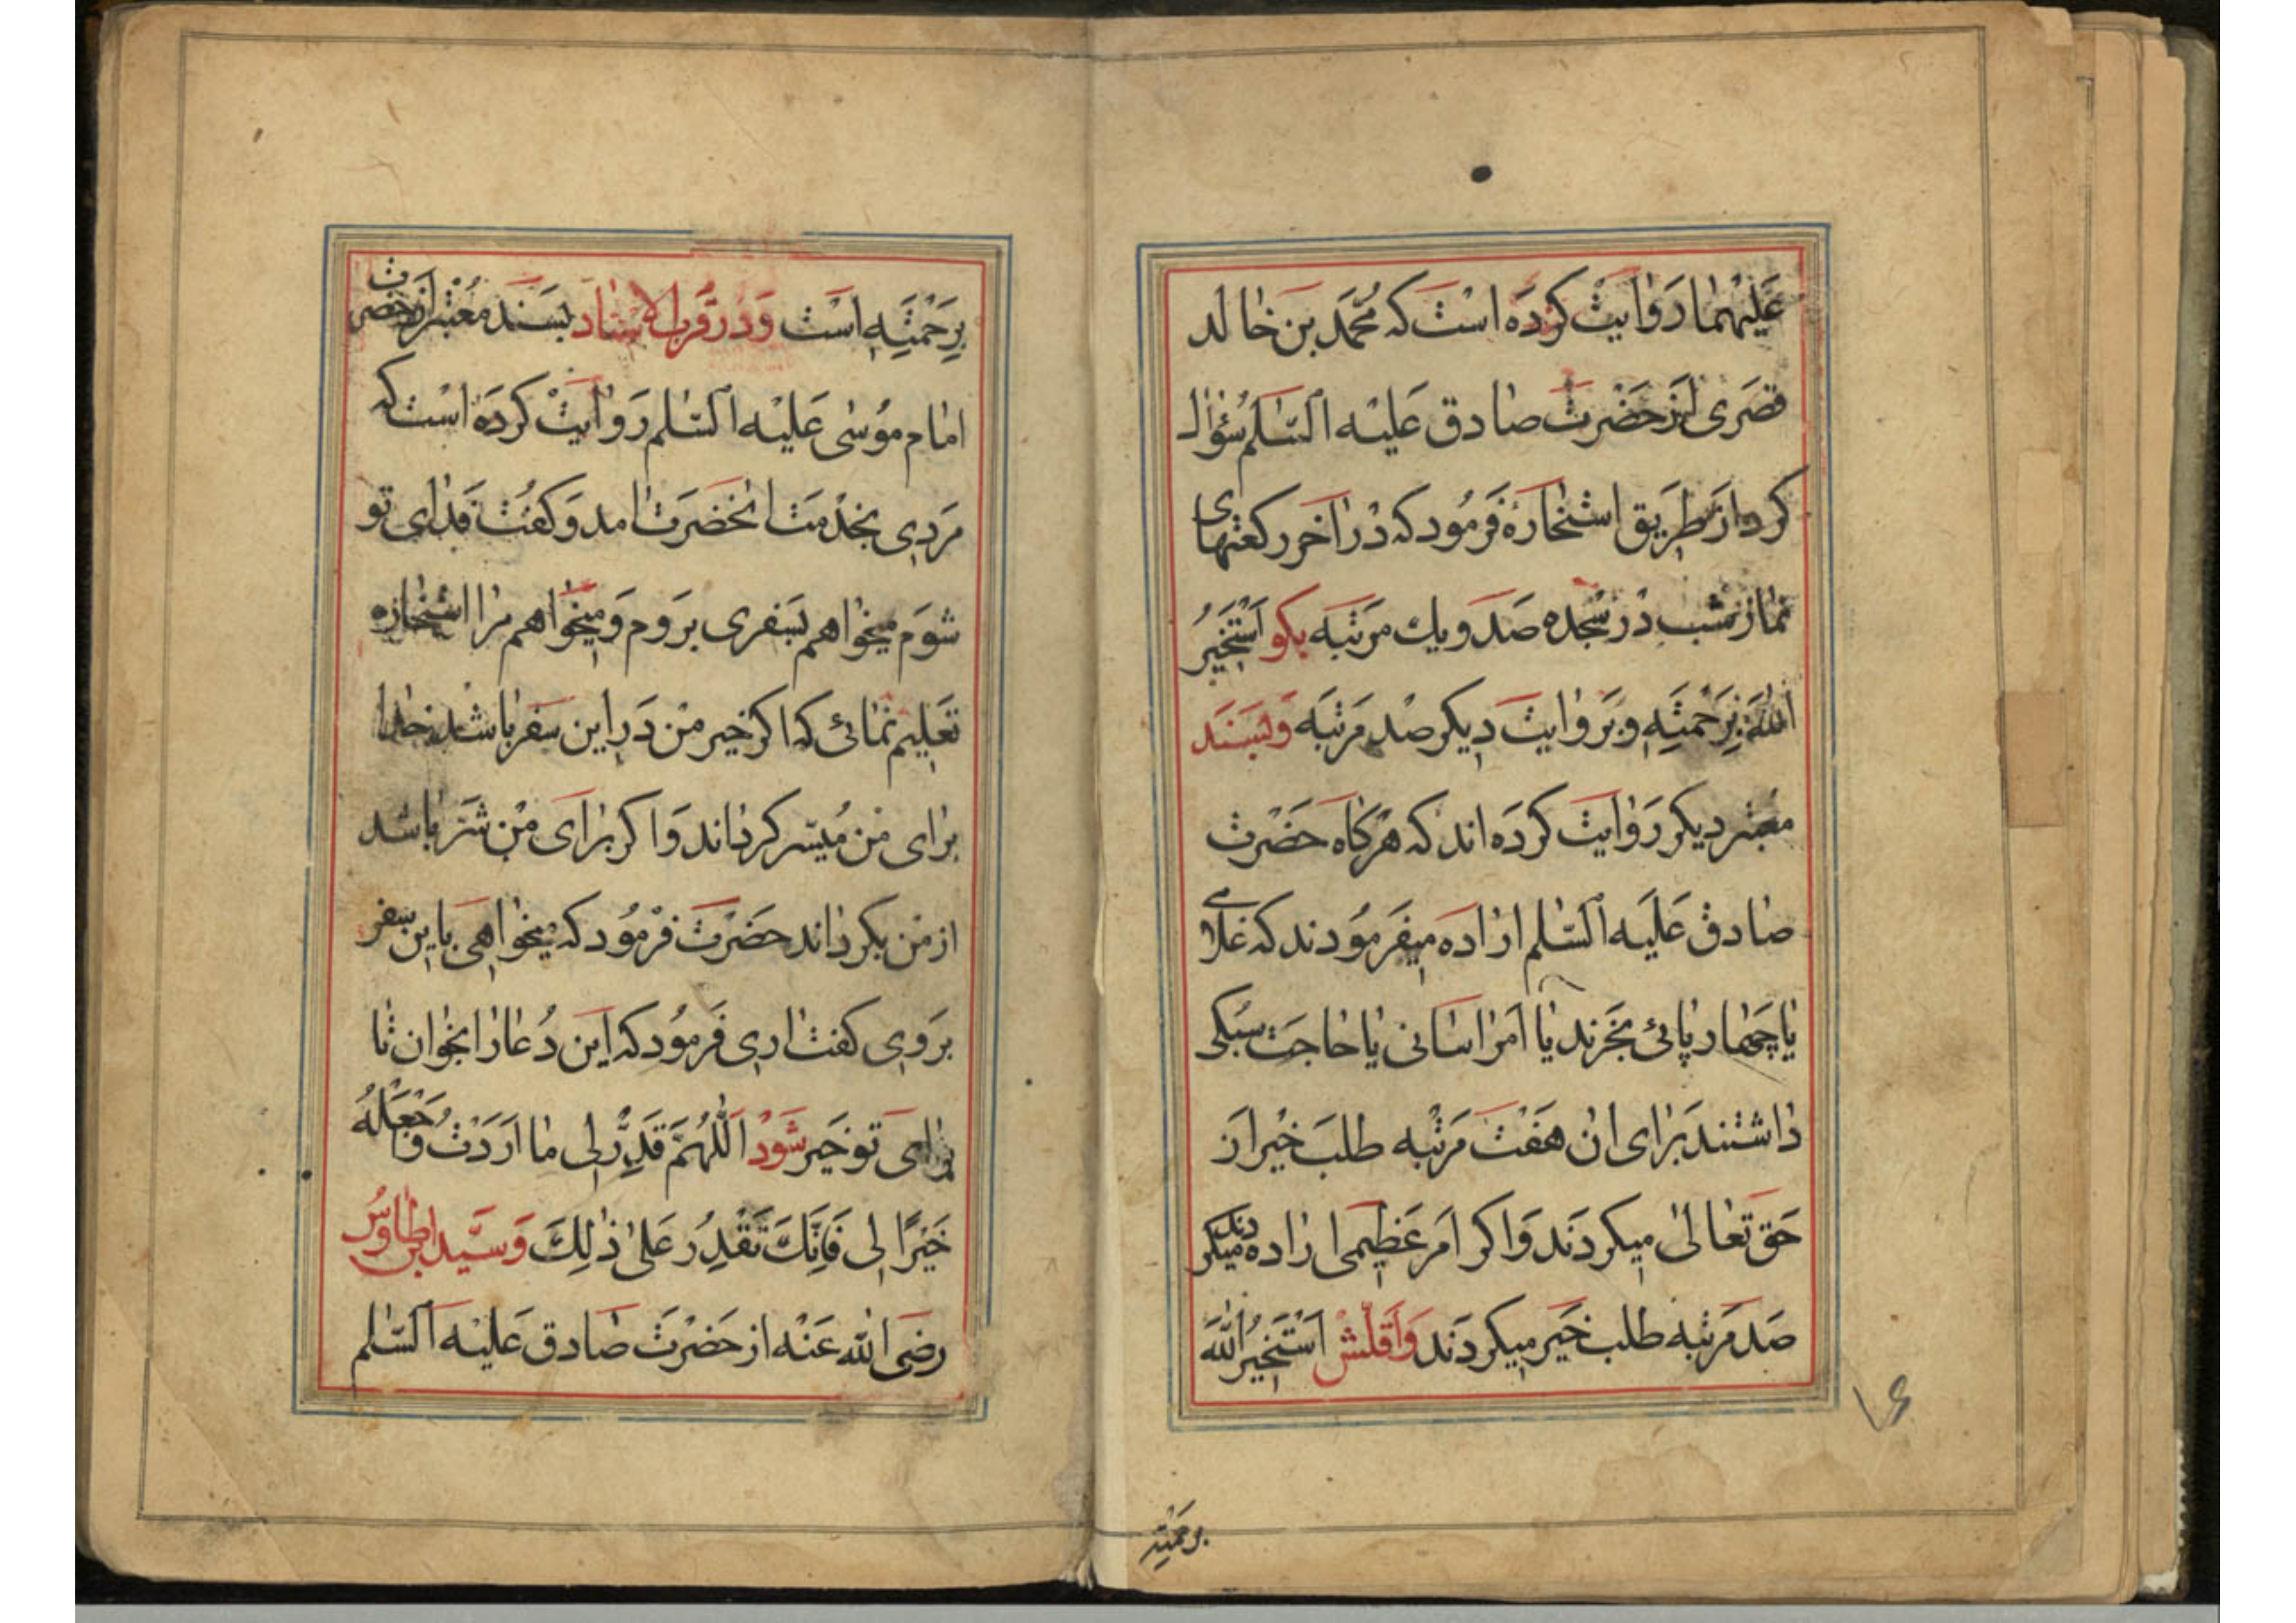 عَلَیْهِمٰا رَوٰایَتْ کَرْدَه اسْتَ که مُحَمَّد بن خٰالد
قصَری از حَضْرَتْ صٰادق عَلَیْه السَّلٰم سُؤٰال
کرد از طَریق اسْتخٰارَه فَرمُود که دْر اخَر رکعتهای
نمٰاز شب دْر سَجْده صَد و یك مَرتَبَه بکو اَسْتَخیرُ
اللّٰهَ بِرَحْمَتِهِ و بَر وٰایَت دیکر صْد مَرتبَه وَ بسَنَد
معتبر دیکر رَوٰایَت کردَه اند که هَرکَاه حَضْرت
صٰادق عَلَیه السَّلٰم ارٰاده میفَرمُودند که غلامی
یٰا چَهٰار پٰائی بخَرند یٰا اَمْر اسٰانی یٰا حٰاجَت سَبُکی
دٰاشتند بَرٰای انْ هَفْتَ مَرْتَبه طلبَ خَیْر اَز
حَق تعٰالیٰ میکردَند وَ اکر اَمر عَظیمی ارٰاده میکر
دند
صَد مَرتبه طلب خَیر میکردَند وَ اَقَلّشْ اَسْتَخیرُ اللّٰهَ
۱۶
برحمته
بِرَحْمَتِهِ اسَتْ وَ دَر قرب الاسنٰاد بسَنَد مُعْتَبر از حضرت
امٰام مُوسٰی عَلَیْه السَّلٰم رَوٰایَتْ کردَه اسْت که
مَردی بخدْمَت انحَضرَت امد وَ کفتْ فدٰای تو
شوَم میخوٰاهم بسَفری بَروم وَ میخوٰاهم مرٰا استخٰاره
تعَلیم نمٰائی که اکر خیر منْ دَر این سَفر بٰاشد خدا
برٰای من مُیَسّر کردٰاند وَ اکر برٰای منْ شَر بٰاشد
از من بکردٰاند حضَرَتْ فرمُود که میخوٰاهی باین سفر
بروی کفت اری فَرمُود که این دُعٰا رٰا بخٰوان تٰا
برٰای تو خَیر شَودْ اَللّٰهُمَّ قَدِّرْ لی مٰا اَرَدْتُ وَ اجْعَلْهُ
خَیْرًا لی فَاِنَّكَ تَقْدِرُ عَلیٰ ذٰلِكَ وَ سَیّد ابن طٰاوُس
رضَی اللّٰه عَنْه از حَضْرَت صٰادق عَلیْه السَّلٰم